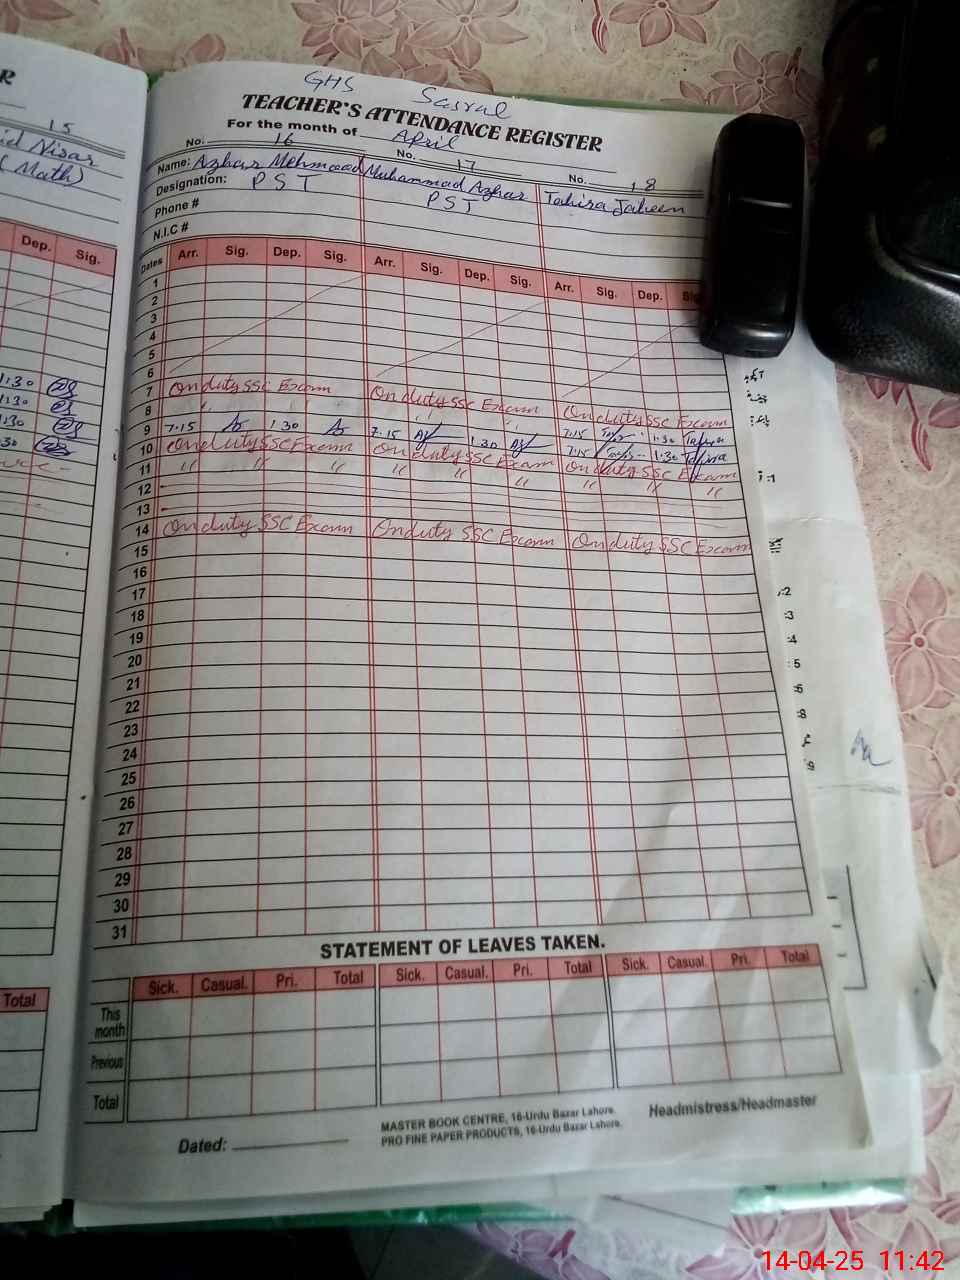 R
15
id Nisar
(Math)
Dep. Sig.
1:30
1:30
1:30
30
Total
GHS Sasral
TEACHER'S ATTENDANCE REGISTER
For the month of April
No. 16 No. 17 No. 18
Name: Azhar Mehmood Muhammad Azhar Tahira Jabeen
Designation: PST PST
Phone #
N.I.C #
Dates Arr. Sig. Dep. Sig. Arr. Sig. Dep. Sig. Arr. Sig. Dep. Sig
1
2
3
4
5
6
7 On duty SSC Exam On duty SSC Exam On duty SSC Exam
8 " "
9 7.15 1.30 7.15 1.30 7.15 1.30 Tahira
10 On duty SSC Exam On duty SSC Exam 7.15 1.30 Tahira
On duty SSC Exam
11 " " " " " " " " "
12
13
14 On duty SSC Exam On duty SSC Exam On duty SSC Exam
15
16
17
18
19
20
21
22
23
24
25
26
27
28
29
30
31
STATEMENT OF LEAVES TAKEN.
Sick. Casual. Pri. Total Sick. Casual. Pri. Total Sick. Casual. Pri. Total
This month
Previous
Total
Dated:
MASTER BOOK CENTRE, 16-Urdu Bazar Lahore.
PRO FINE PAPER PRODUCTS, 16-Urdu Bazar Lahore.
Headmistress/Headmaster
:2
:3
:4
:5
:6
:8
:9
14-04-25 11:42